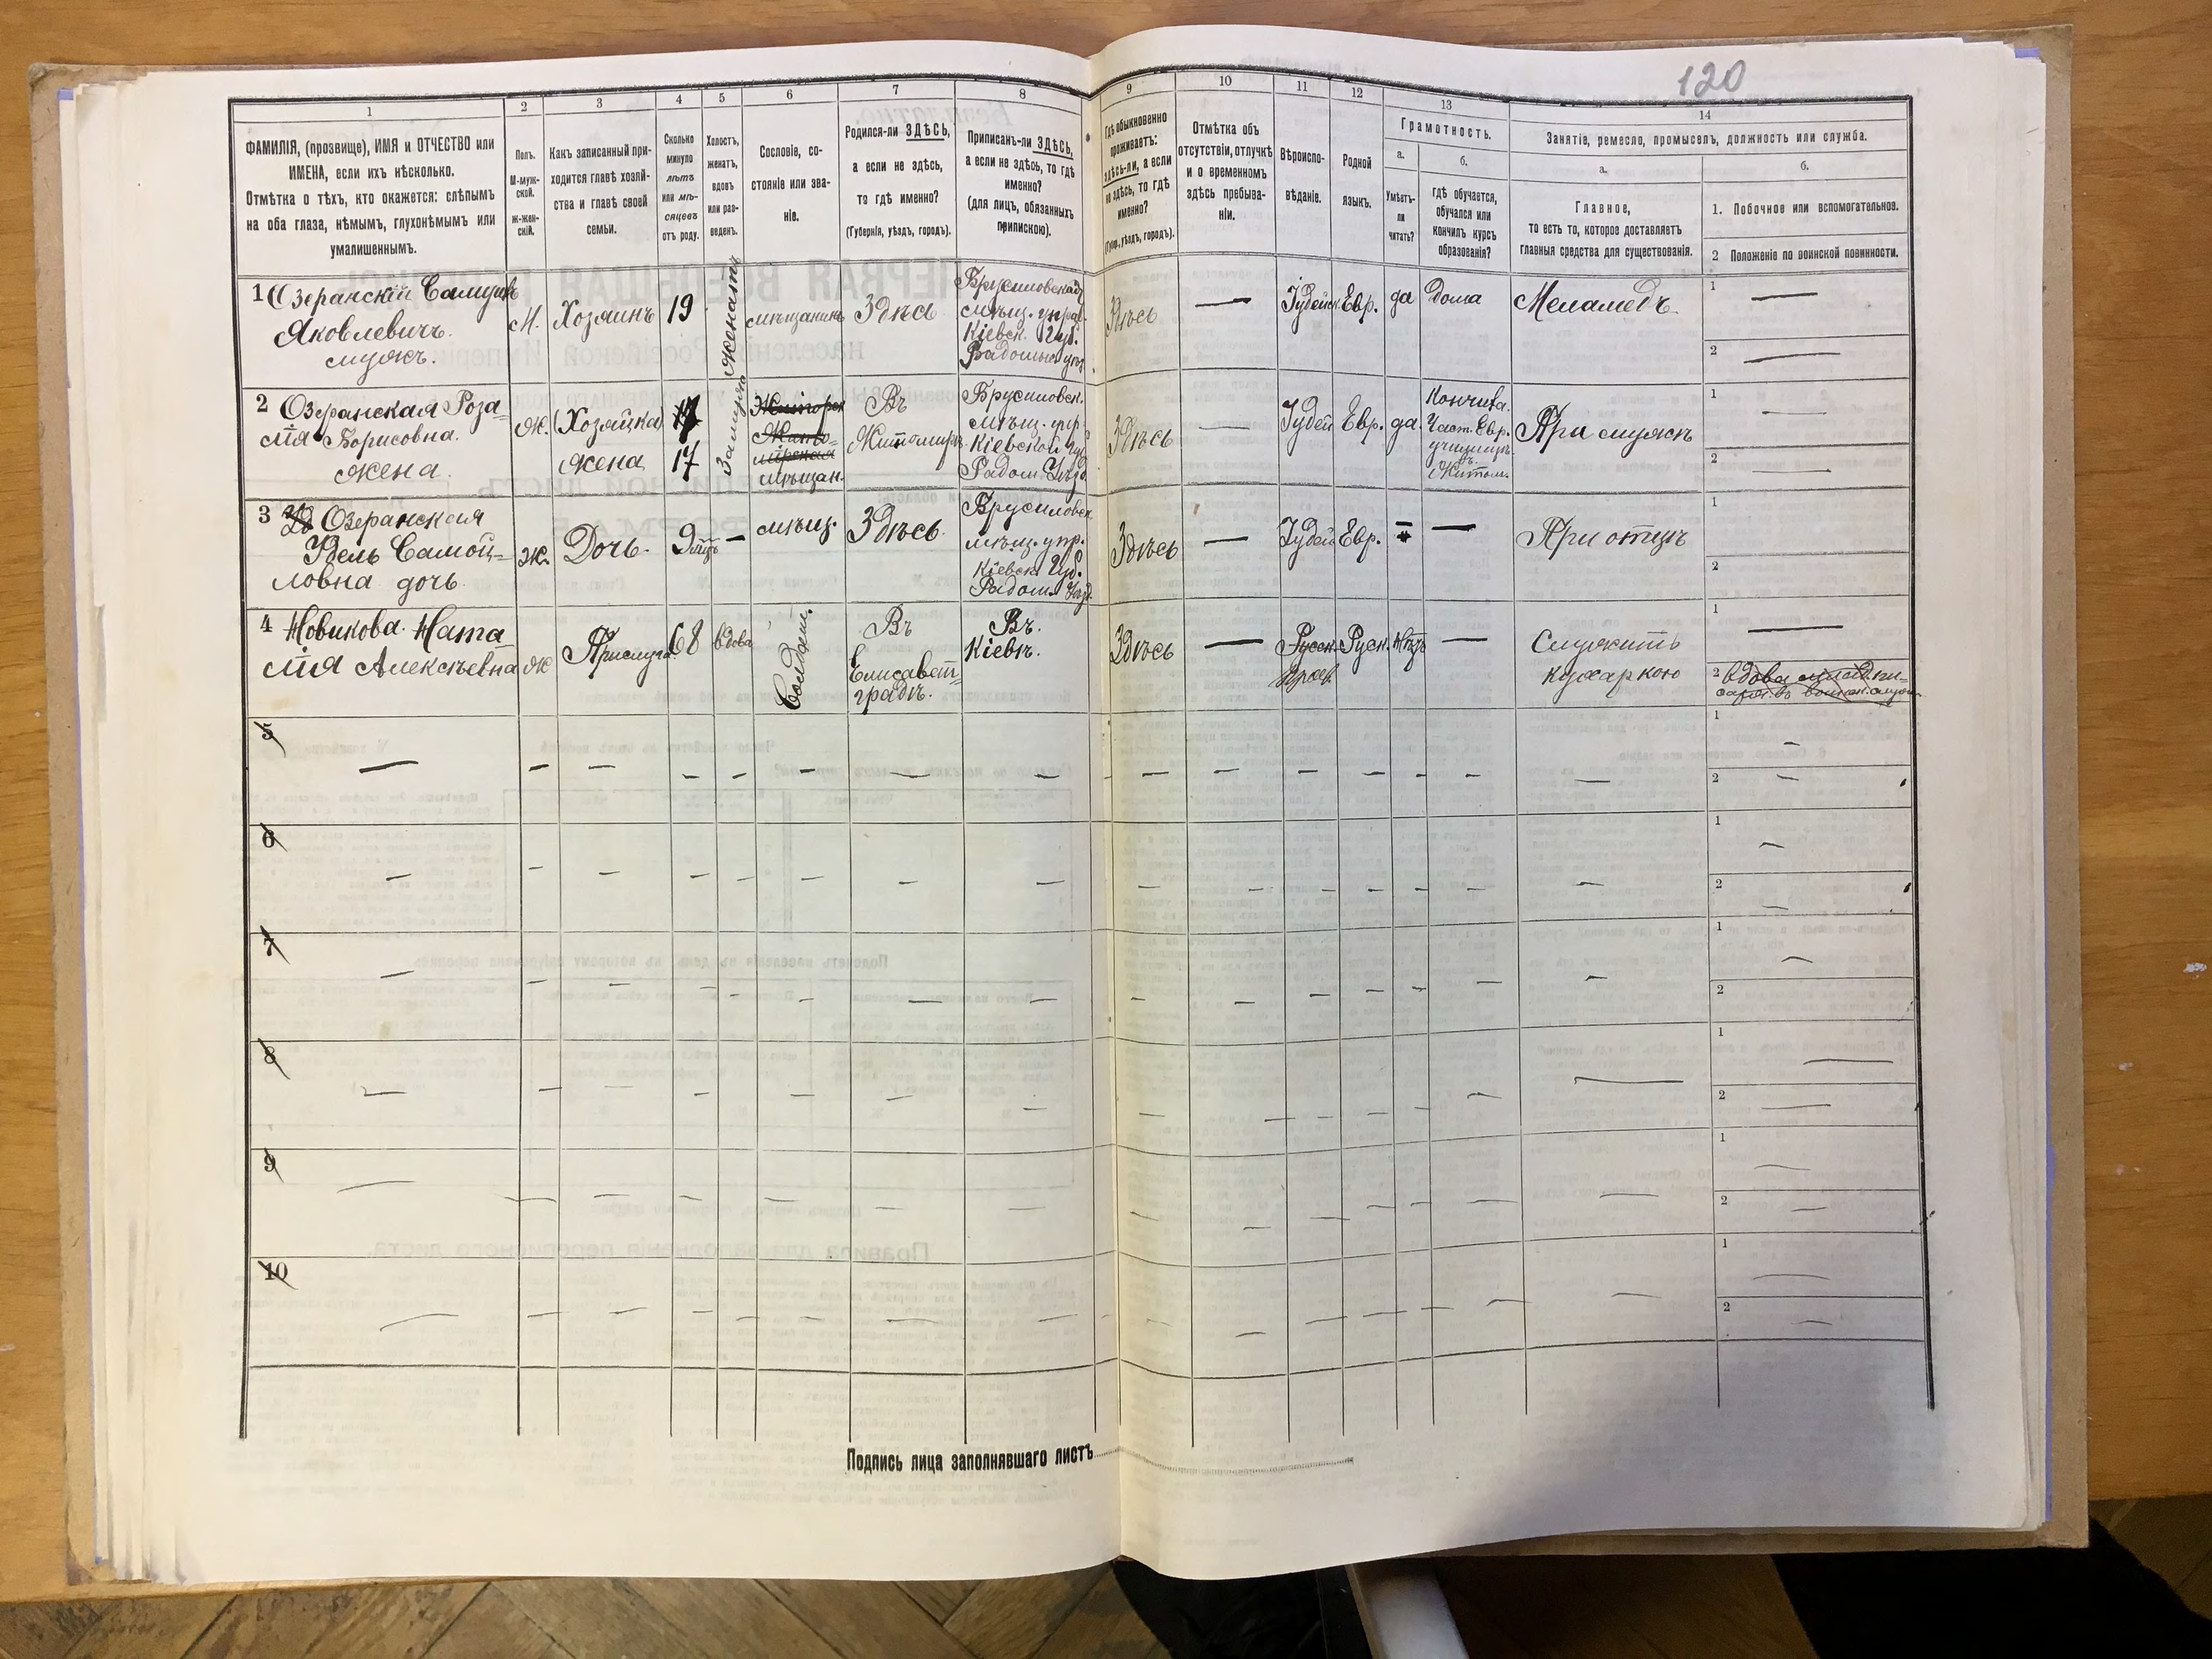 120
1
2
3
4
5
6
7
8
9
10
11
12
13
14
ФАМИЛІЯ, (прозвище), ИМЯ и ОТЧЕСТВО или
ИМЕНА, если ихъ нѣсколько.
Отмѣтка о тѣхъ, кто окажется: слѣпымъ
на оба глаза, нѣмымъ, глухонѣмымъ или
умалишеннымъ.
Полъ.
М-муж-
ской.
ж-жен-
скій.
Какъ записанный при-
ходится главѣ хозяй-
ства и главѣ своей
семьи.
Сколько
минуло
лѣтъ
или мѣ-
сяцевъ
отъ роду.
Холостъ,
женатъ,
вдовъ
или раз-
веденъ.
Сословіе, со-
стояніе или зва-
ніе.
Родился-ли ЗДѢСЬ,
а если не здѣсь,
то гдѣ именно?
(Губернія, уѣздъ, городъ).
Приписанъ-ли ЗДѢСЬ,
а если не здѣсь, то гдѣ
именно?
(для лицъ, обязанныхъ
припискою).
Гдѣ обыкновенно
проживаетъ:
здѣсь-ли, а если
не здѣсь, то гдѣ
именно?
(Губер., уѣздъ, городъ).
Отмѣтка объ
отсутствіи, отлучкѣ
и о временномъ
здѣсь пребыва-
ніи.
Вѣроиспо-
вѣданіе.
Родной
языкъ.
Грамотность.
а.
Умѣетъ-
ли
читать?
б.
гдѣ обучается,
обучался или
кончилъ курсъ
образованія?
Занятіе, ремесло, промыселъ, должность или служба.
а.
Главное,
то есть то, которое доставляетъ
главныя средства для существованія.
б.
1. Побочное или вспомогательное.
2 Положеніе по воинской повинности.
1 Озеранскій Самуилъ
Яковлевичъ.
мужъ.
М.
Хозяинъ
19
женатъ
мѣщанинъ
Здѣсь
Брусиловская
мѣщ. упр.
Кіевск. Губ.
Радомыс. уѣз.
Здѣсь
—
Іудейск.
Евр.
да
дома
Меламедъ.
1 —
2 —
2 Озеранская Роза-
лія Борисовна.
жена.
Ж.
(Хозяйка)
жена
17
17
Замужемъ
мѣщан.
Въ
Житомирѣ
Брусиловск.
мѣщ. упр.
Кіевской Губ.
Радом. Уѣзд.
Здѣсь
—
Іудей
Евр.
да
Кончила
Част. Евр.
училищъ
Житом.
При мужѣ
1 —
2 —
3 Озеранская
Удель Самой-
ловна дочь.
Ж.
Дочь.
9 мѣц
—
мѣщ.
Здѣсь.
Брусиловск.
мѣщ. упр.
Кіевск. Губ.
Радом. Уѣзд.
Здѣсь
—
Іудей
Евр.
—
—
При отцѣ
1
2
4 Новикова Ната
лія Алексѣевна
Ж
Прислуга
68
вдова
Солдат.
Въ
Елисавет-
градѣ.
Въ.
Кіевѣ.
Здѣсь
—
Русск.
Прав.
Руск.
Нѣтъ
—
Служитъ
кухаркою
1 —
2 вдова
5
1
2
6
1
2
7
1
2
8
1
2
9
1
2
10
1
2
Подпись лица заполнявшаго листъ